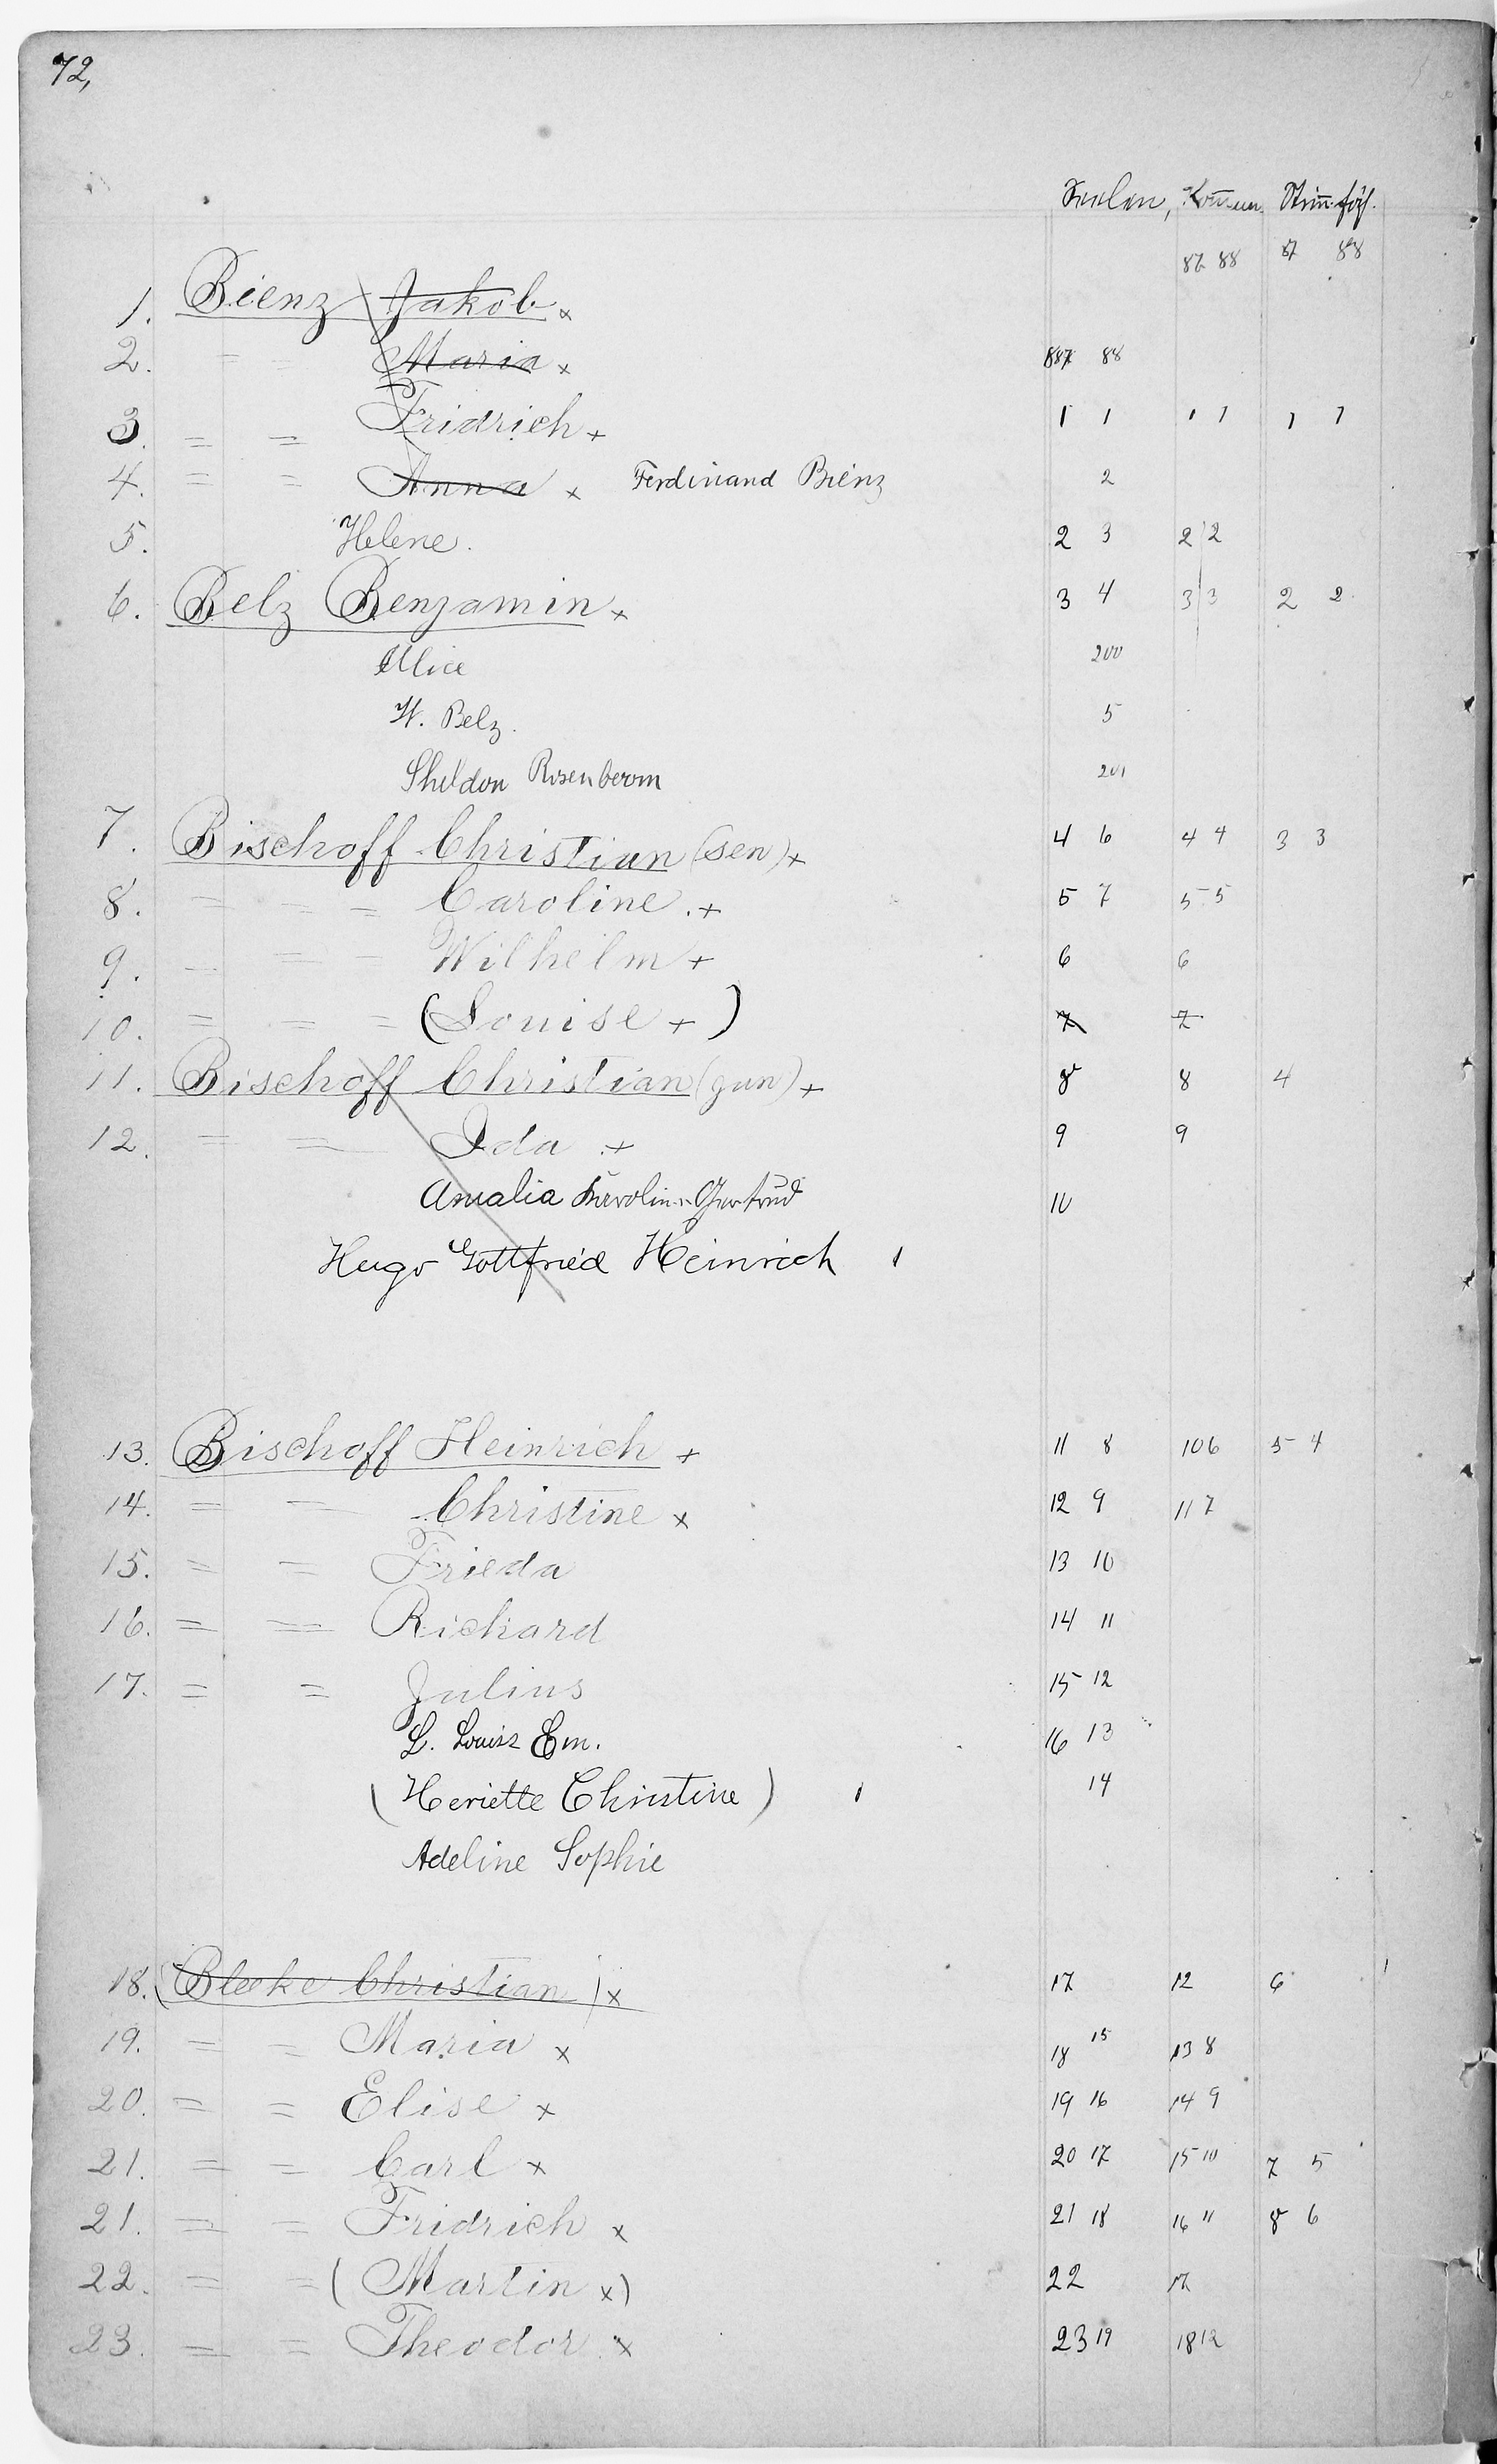 72,
Seelen, Komun. Stimfäh.
87 88 87 88
1. Bienz Jakob x
2. = = Maria x 887 88
3. = = Fridrich + 1 1 1 1 1 1
4. = = Anna x Ferdinand Bienz 2
5. Helene. 2 3 2 2
6. Belz Benjamin x 3 4 3 3 2 2
Alice 200
W. Belz. 5
Sheldon Rosenboom 201
7. Bischoff Christian (sen) + 4 6 4 4 3 3
8. = = = Caroline. + 5 7 5 5
9. = = = Wilhelm + 6 6
10. = = = (Louise +) 7 7
11. Bischoff Christian (jun) + 8 8 4
12. = = Ida + 9 9
Amalia Karolin. Gertrud 10
Hugo Gottfried Heinrich 1
13. Bischoff Heinrich + 11 8 10 6 5 4
14. = = Christine x 12 9 11 7
15. = = Frieda 13 10
16. = = Richard 14 11
17. = = Julius 15 12
L. Louise Em. 16 13
(Heriette Christine) 1 14
Adeline Sophie
18. (Bleeke Christian) x 17 12 6
19. = = Maria x 18 15 13 8
20. = = Elise x 19 16 14 9
21. = = Carl x 20 17 15 10 7 5
21. = = Fridrich x 21 18 16 11 8 6
22. = = (Martin x) 22 17
23. = = Theodor x 23 19 18 12